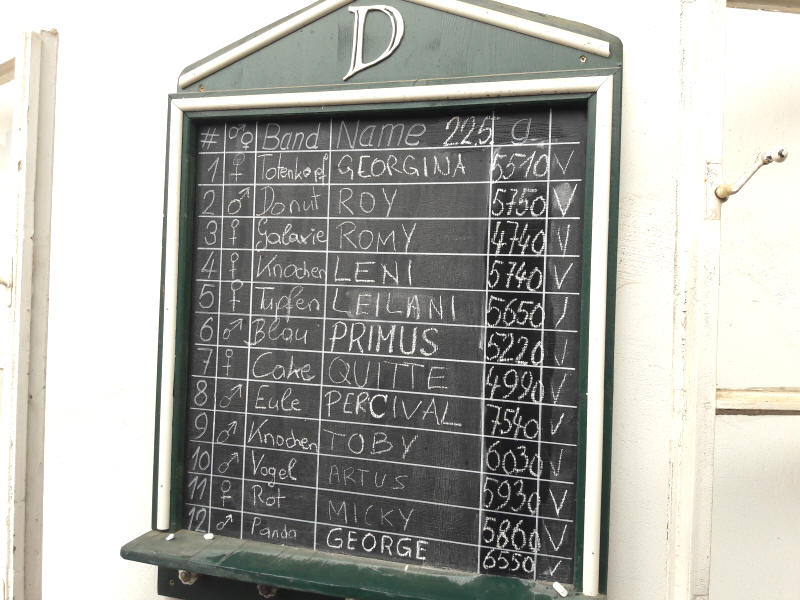 D
# ♂♀ Band Name 22.5 g
1 ♀ Totenkopf GEORGINA 5510 V
2 ♂ Donut ROY 5750 V
3 ♀ Galaxie ROMY 4740 V
4 ♀ Knochen LENI 5740 V
5 ♀ Tupfen LEILANI 5650 /
6 ♂ Blau PRIMUS 5220 V
7 ♀ Cake QUITTE 4990 V
8 ♂ Eule PERCIVAL 7540 V
9 ♂ Knochen TOBY 6030 V
10 ♂ Vogel ARTUS 5930 V
11 ♀ Rot MICKY 5860 V
12 ♂ Panda GEORGE 6550 ✓